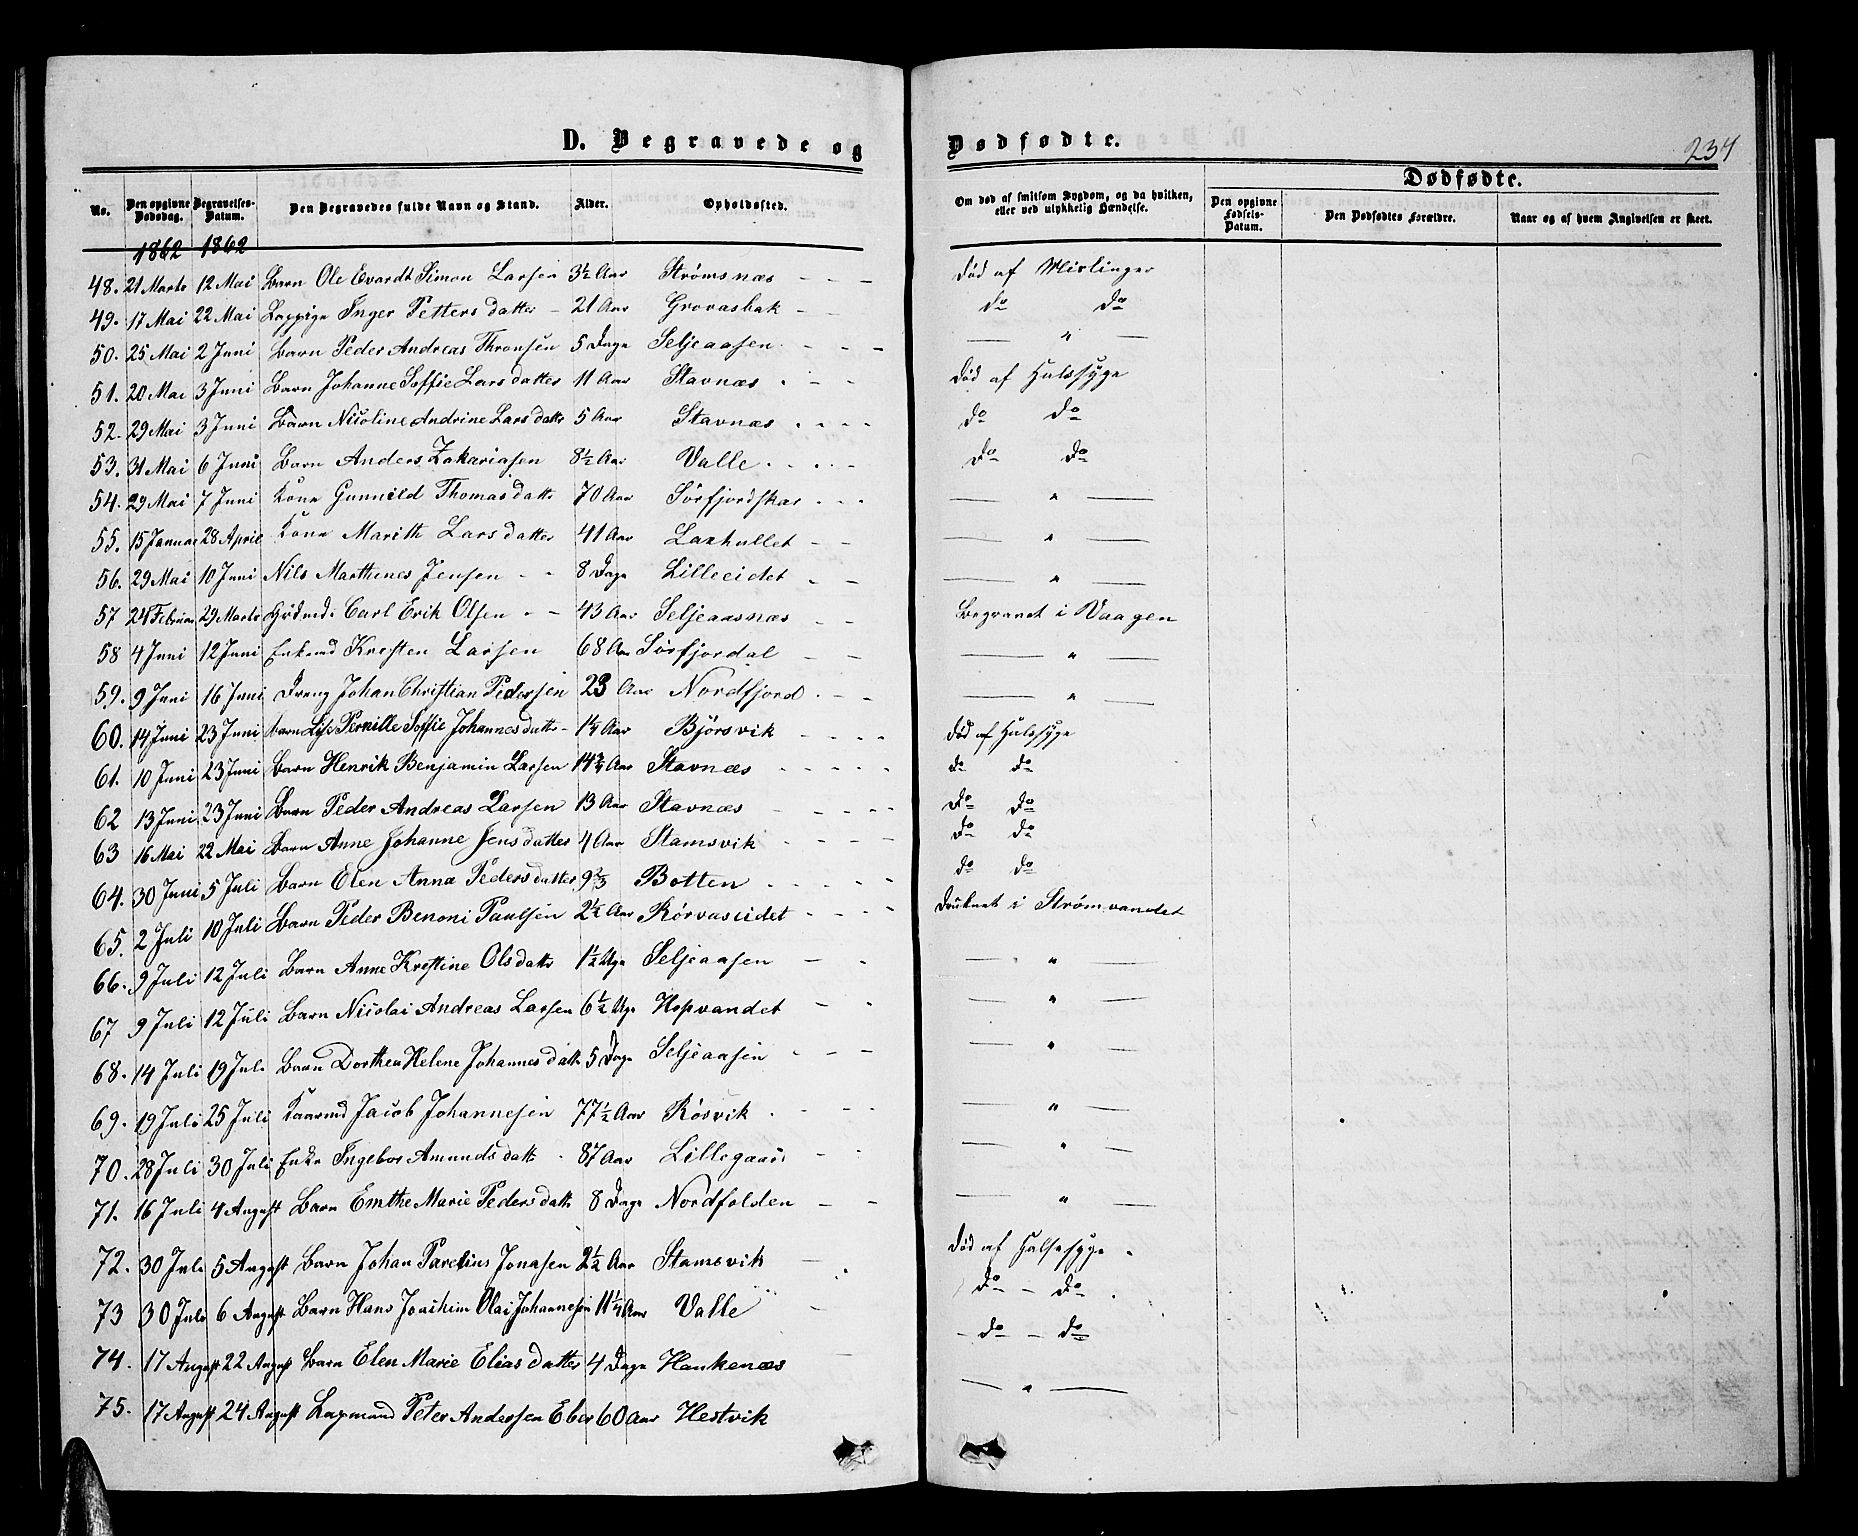 D. Begravede og Dødfødte.
234
No. Den opgivne Dødsdag. Begravelses-Datum. Den Begravedes fulde Navn og Stand. Alder. Opholdssted. Om død af smitsom Sygdom, og da hvilken, eller ved ulykkelig Hændelse. Dødfødte. Den opgivne Fødsels-Datum. Den Dødfødtes Forældre. Naar og af hvem Angivelsen er skeet.
1862 1862
48. 21 Marts 12 Mai Barn Ole Evardt Simon Larsen 3½ Aar Strømsnæs - - død af Mislinger
49. 17 Mai 22 Mai Loppige Inger Petters datter - 21 Aar Grovasbak - - do do
50. 25 Mai 2 Juni Barn Peder Andreas Thronsen 5 Dage Seljeaasen - - - — " —
51. 20 Mai 3 Juni Barn Johanne Soffie Lars datter 11 Aar Stavnæs - - - død af Halssyge
52. 29 Mai 3 Juni Barn Nicoline Andrine Lars datter 5 Aar Stavnæs - - - - do do
53. 31 Mai 6 Juni Barn Anders Zakariasen 8½ Aar Valle - - - - do do
54. 29 Mai 7 Juni Kone Gunnild Thomas datter 70 Aar Sørfjordskar - - - — " —
55. 15 Januar 28 April Kone Marith Lars datter 41 Aar Laxhullet - - — " —
56. 29 Mai 10 Juni Nils Marthenes Jensen - - 8 Dage Lilleeidet - - — " —
57 24 Februar 29 Marts Huusmd. Carl Erik Olsen - - 43 Aar Seljeaasnæs - - Begravet i Vaagen
58 4 Juni 12 Juni Enkemd Kresten Larsen 68 Aar Sørfjordal - - — " —
59. 9 Juni 16 Juni Dreng Johan Christian Pedersen 23 Aar Nordfjord - - - — " —
60. 14 Juni 23 Juni barn Lise Pernille Soffie Johannes datter - 1¼ Aar Bjørsvik - - - - død af Halssyge
61. 10 Juni 23 Juni Barn Henrik Benjamin Larsen 14¾ Aar Stavnæs - - - - - do do
62 13 Juni 23 Juni Barn Peder Andreas Larsen 13 Aar Stavnæs - - - - do do
63 16 Mai 22 Mai Barn Anne Johanne Jens datter 4 Aar Stamsvik - - - - do do
64. 30 Juni 5 Juli Barn Elen Anna Peders datter 9⅔ Botten - - - - - do do
65. 2 Juli 10 Juli Barn Peder Benoni Paulsen 2½ Aar Rørvaseidet - - - - Druknet i Strømvandet
66. 9 Juli 12 Juli Barn Anne Krestine Ols datter 1½ Uge Seljeaasen - - — " —
67 9 Juli 12 Juli Barn Nicolai Andreas Larsen 6½ Uge Hopvandet - - — " —
68. 14 Juli 19 Juli Barn Dorthea Helene Johannes datter 5 Dage Seljeaasen - - - — " —
69. 19 Juli 25 Juli Kaarmd Jacob Johannesen 77½ Aar Røsvik - - - — " —
70. 28 Juli 30 Juli Enke Ingebor Amunds datt - 87 Aar Lillegaard - - — " —
71. 16 Juli 4 August Barn Emthe Marie Peders datter 8 Dage Nordfolden - - — " —
72. 30 Juli 5 August Barn Johan Parelius Jonasen 2½ Aar Stamsvik - Død af Halsesyge -
73 30 Juli 6 August Barn Hans Joachim Olai Johannesen 11¼ Aar Valle - do - do -
74. 17 August 22 August Barn Elen Marie Elias datter 4 Dage Hankenæs - - do - do
75. 17 August 24 August Lapmand Peter Anderssen Eber 60 Aar Hestvik — " —